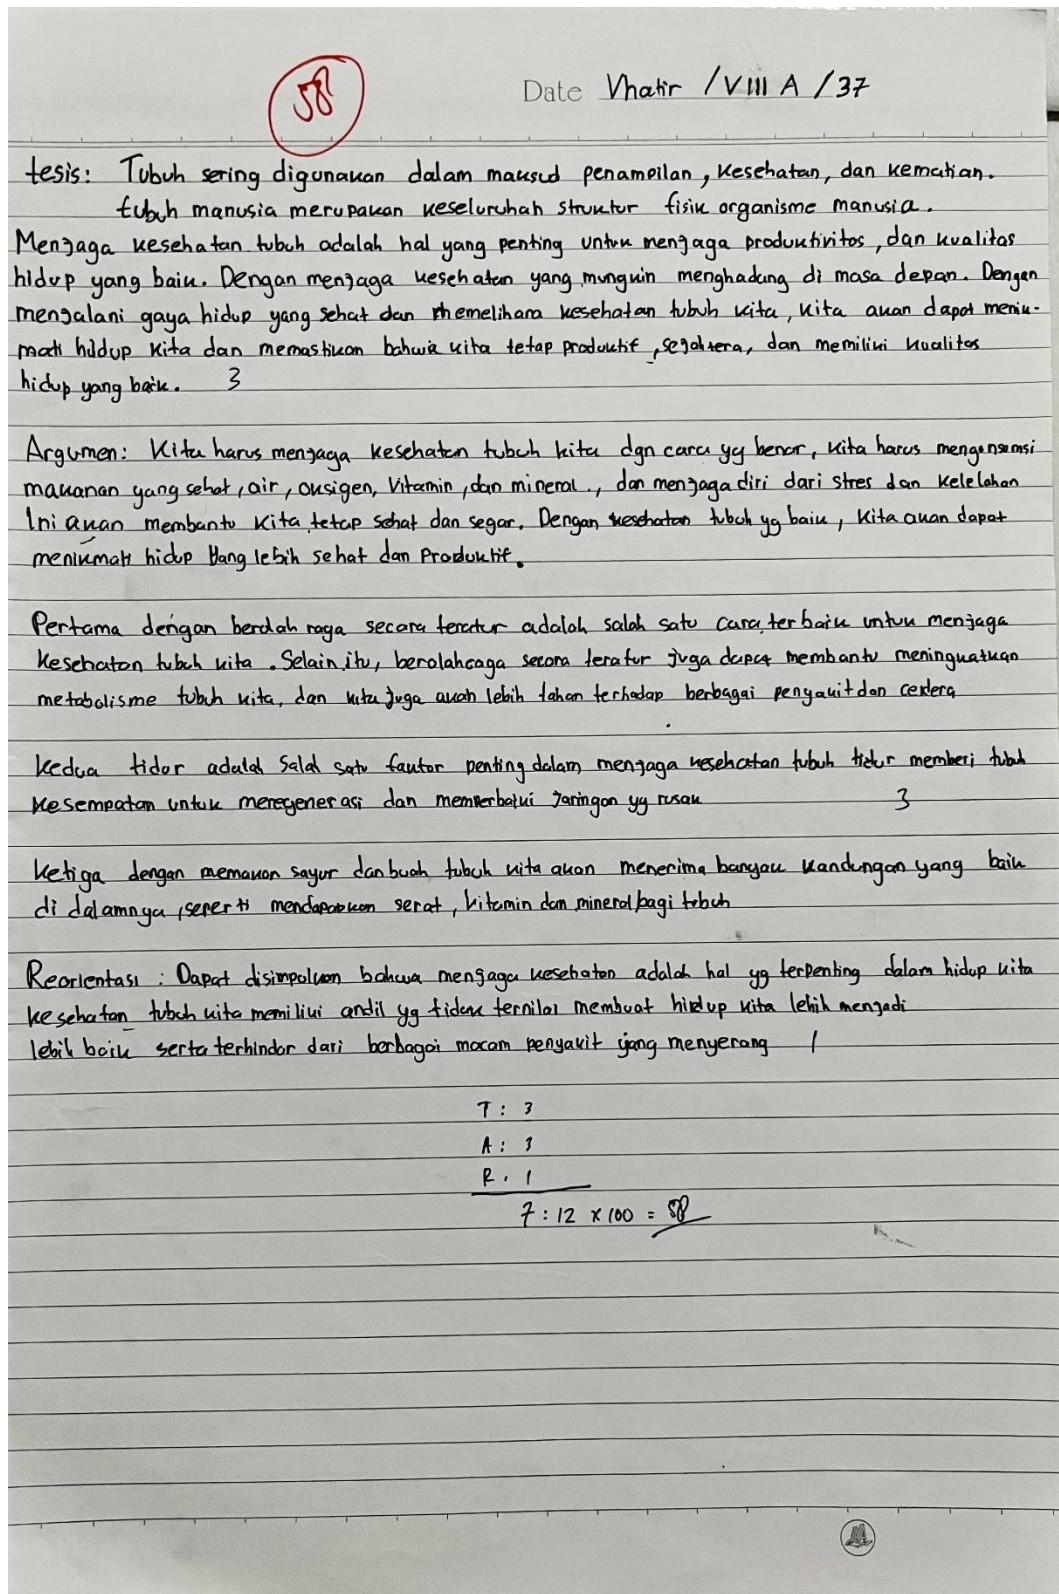 58
Date Vhatir / VIII A / 37
tesis: Tubuh sering digunakan dalam maksud penampilan, kesehatan, dan kematian.
tubuh manusia merupakan keseluruhah struktur fisik organisme manusia.
Menjaga kesehatan tubuh adalah hal yang penting untuk menjaga produktivitas, dan kualitas
hidup yang baik. Dengan menjaga kesehatan yang mungkin menghadang di masa depan. Dengan
menjalani gaya hidup yang sehat dan memelihara kesehatan tubuh kita, kita akan dapat menik-
mati hidup kita dan memastikan bahwa kita tetap produktif, sejahtera, dan memiliki kualitas
hidup yang baik. 3
Argumen: Kita harus menjaga kesehatan tubuh kita dgn cara yg benar, kita harus mengonsumsi
makanan yang sehat, air, oksigen, Vitamin, dan mineral., dan menjaga diri dari stres dan kelelahan
Ini akan membantu kita tetap sehat dan segar. Dengan kesehatan tubuh yg baik, kita akan dapat
menikmati hidup yang lebih sehat dan Produktif.
Pertama dengan berolah raga secara teratur adalah salah satu cara terbaik untuk menjaga
kesehatan tubuh kita. Selain itu, berolahraga secara teratur juga dapat membantu meningkatkan
metabolisme tubuh kita, dan kita juga akan lebih tahan terhadap berbagai penyakit dan cedera
kedua tidur adalah salah satu faktor penting dalam menjaga kesehatan tubuh tidur memberi tubuh
kesempatan untuk meregenerasi dan memperbaiki jaringan yg rusak 3
ketiga dengan memakan sayur dan buah tubuh kita akan menerima banyak kandungan yang baik
di dalamnya, seperti mendapatkan serat, vitamin dan mineral bagi tubuh
Reorientasi : Dapat disimpulkan bahwa menjaga kesehatan adalah hal yg terpenting dalam hidup kita
kesehatan tubuh kita memiliki andil yg tidak ternilai membuat hidup kita lebih menjadi
lebih baik serta terhindar dari berbagai macam penyakit yang menyerang 1
T : 3
A : 3
R . 1
7 : 12 x 100 = 58